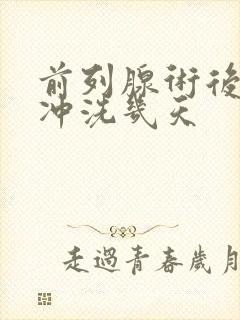 前列腺術後
沖洗幾天
走過青春歲月